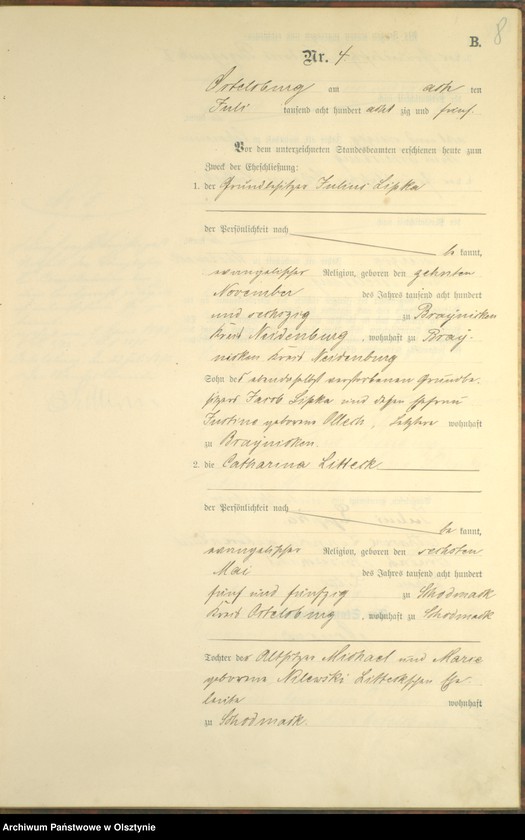 8
B.
Nr. 4
Ortelsburg am acht ten
Juli tausend acht hundert acht zig und fünf
Vor dem unterzeichneten Standesbeamten erschienen heute zum
Zweck der Eheschließung:
1. der Grundbesitzer Julius Lipka
der Persönlichkeit nach
be kannt,
evangelischer Religion, geboren den zehnten
November des Jahres tausend acht hundert
und sechszig zu Braynicken
Kreis Neidenburg, wohnhaft zu Bray-
nicken Kreis Neidenburg
Sohn des ebendaselbst verstorbenen Grundbe-
sitzers Jacob Lipka und dessen Ehefrau
Justine geborene Ollech, Letztere wohnhaft
zu Braynicken.
2. die Catharina Litteck
der Persönlichkeit nach
be kannt,
evangelischer Religion, geboren den sechsten
Mai des Jahres tausend acht hundert
fünf und fünfzig zu Schodmack
Kreis Ortelsburg, wohnhaft zu Schodmack
Tochter der Altsitzer Michael und Marie
geborene Nilewski Litteckschen Ehe-
leute wohnhaft
zu Schodmack.
Archiwum Państwowe w Olsztynie